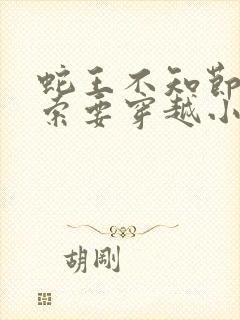 蛇王不知節
索要穿越小
胡剛